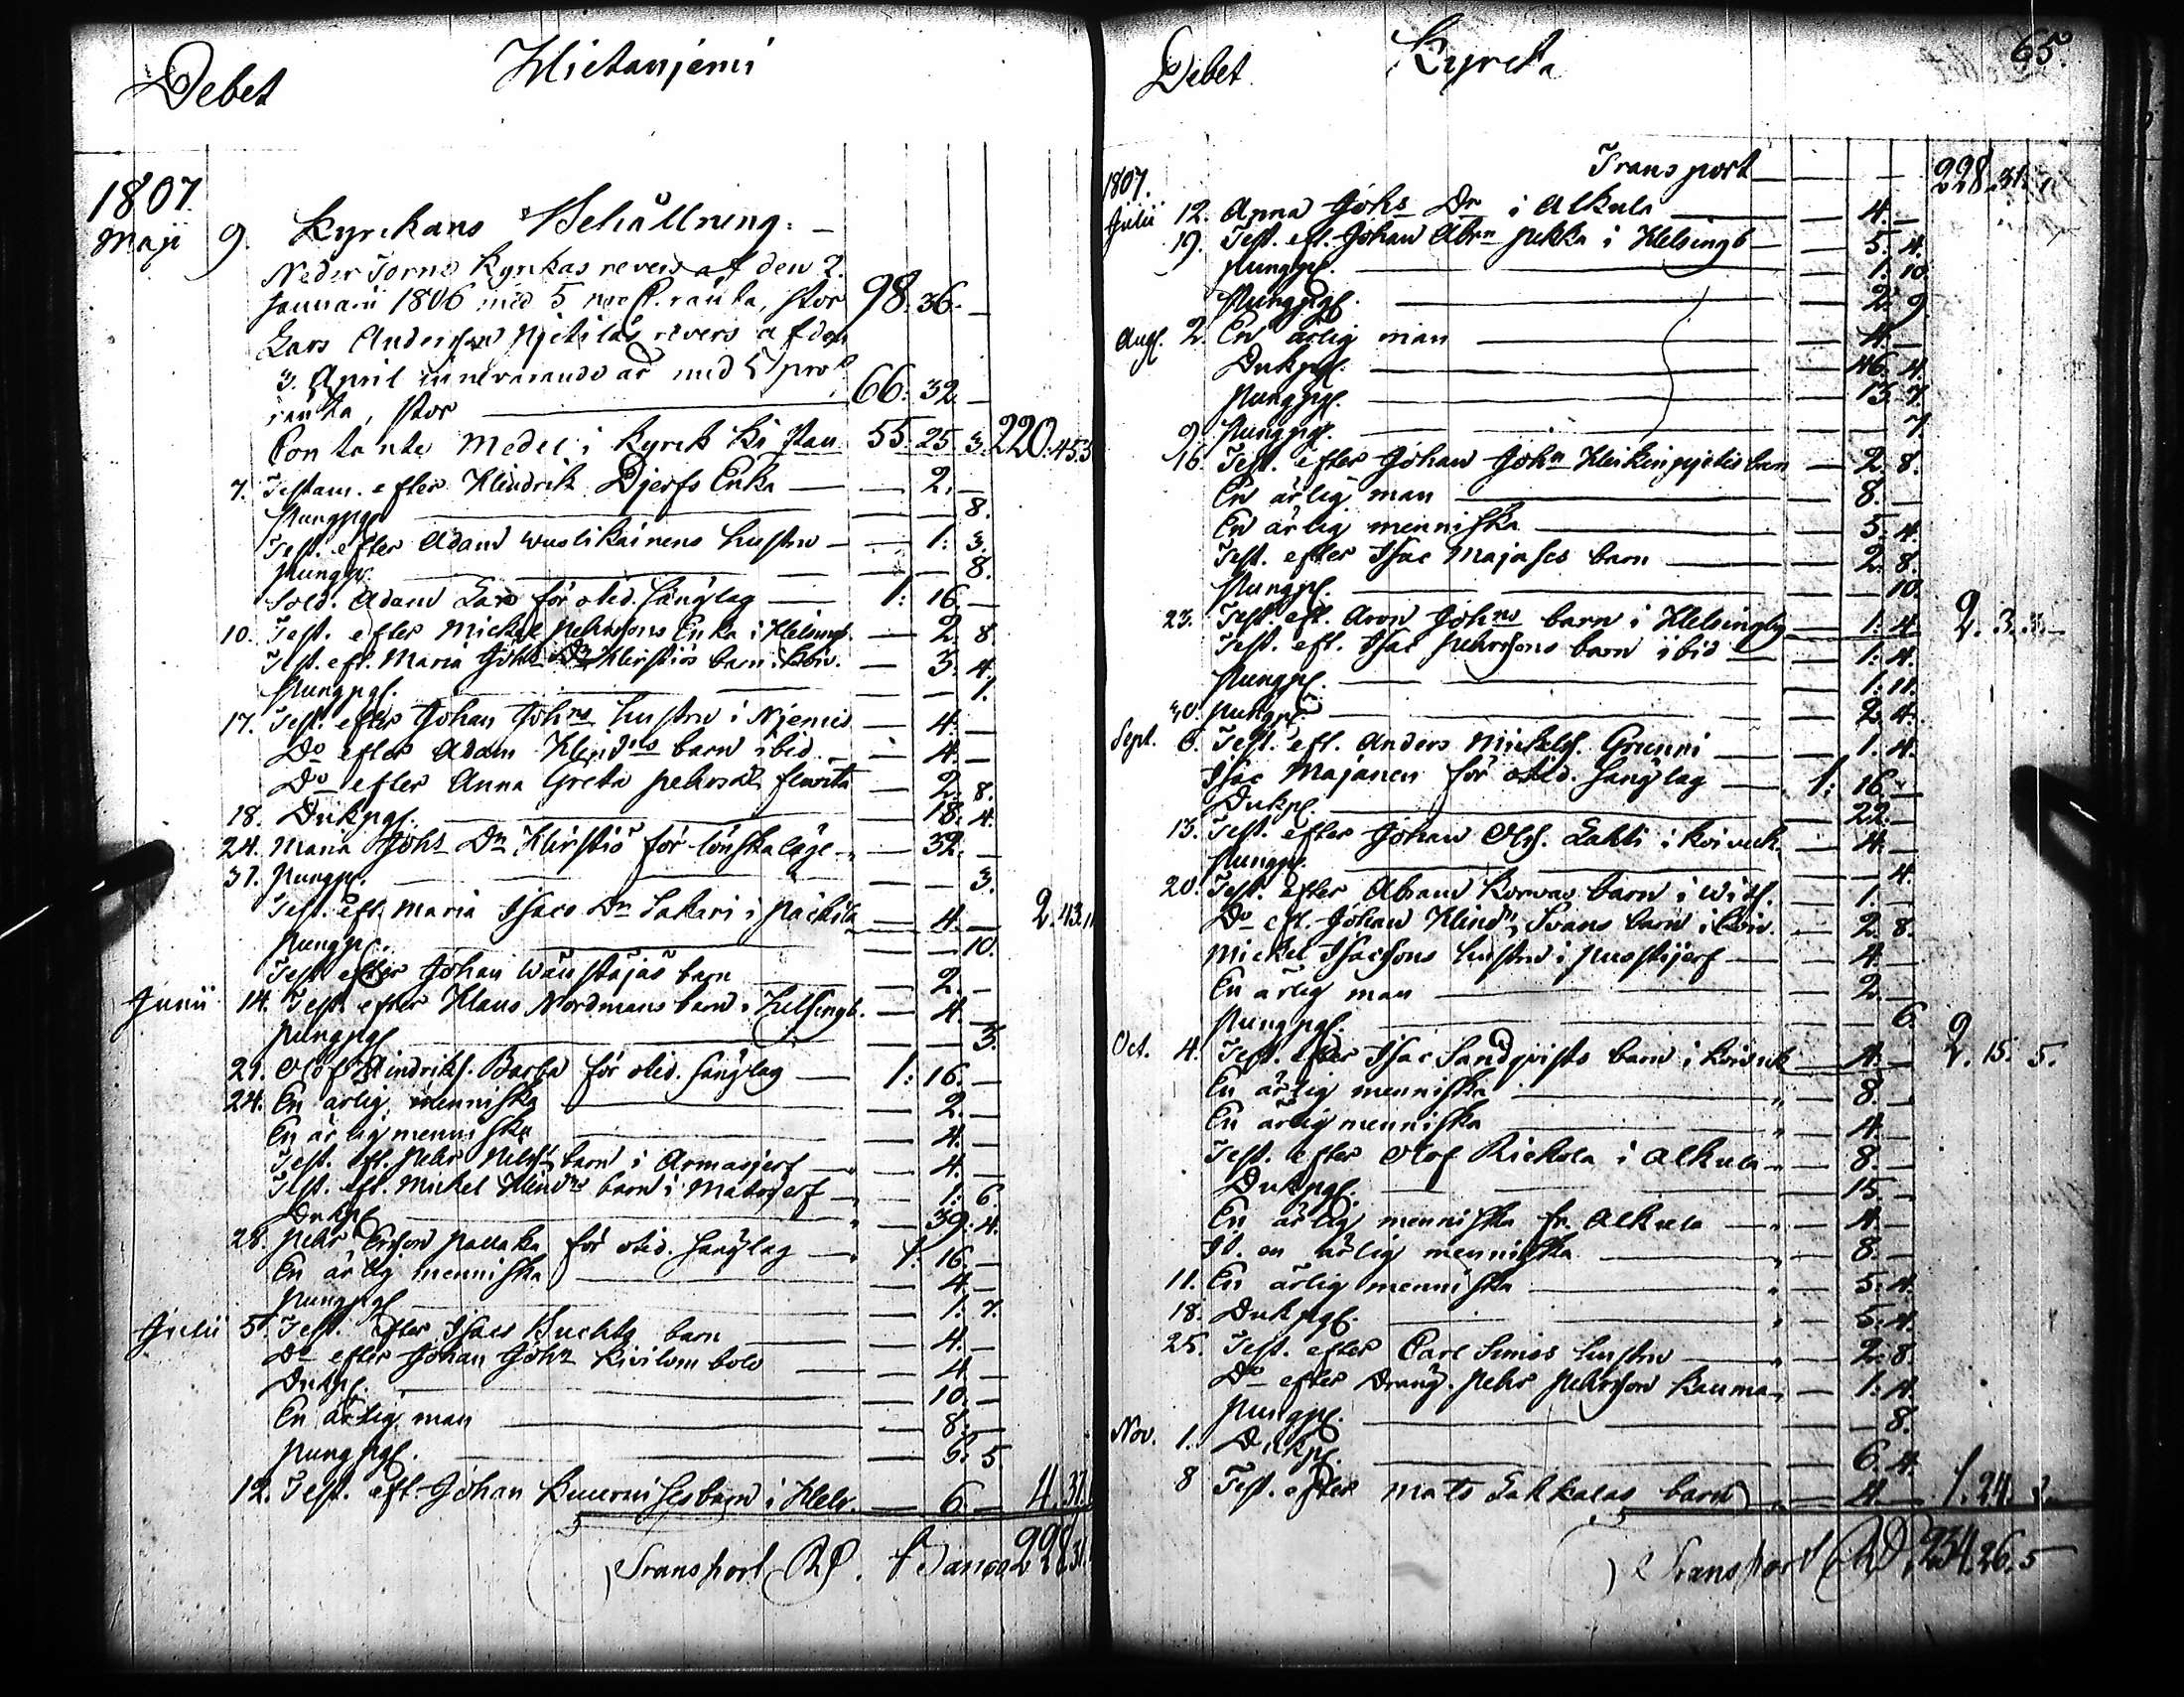 Debet Hietaniemi
1807.
Maji 9. Kyrckans Behållning:
Neder Torneå Kyrkas revers af den 2.
Januarii 1806 med 5 proC. ränta, stor 98. 36. —
Lars Andersson Niskilas revers af den
3. April innevarande år med 5 proC
ränta, stor — 66. 32. —
Contante Medel i Kyrck Kistan 55. 25. 3. 220. 45. 3
7. Testam. efter Hindrik Djerfs Enka — 2. —
Pungpgr — 8.
Test. efter Adam Wuolikainens hustru — 1: 3.
Pungpr. — 8.
Sold. Adam Lars för otid. sänglag — 1: 16. —
10. Test. efter Mickel Pehrssons Enka i Helsingb. — 2. 8.
Test. eft. Maria Johs Dr barn i Koiv. — 5. 4.
Pungpgr. — 1.
17. Test. efter Johan Johns hustru i Niemis — 4. —
Do efter Adam Hindrs barn ibid. — 4. —
Do efter Anna Greta Pehrsdr — 2. 8.
18. Dukpgr. — 18. 4.
24. Maria Johs Dr för lönskaläge — 32. —
31. Pungpr. — 3.
Test. eft. Maria Isacs Dr Lakari i Päckila — 4. — 2. 43. 11
Pungpr. — 10.
Test. efter Johan barn — 2. —
Junii 14. Test. efter Klaus Nordmans barn i Helsingb. — 4. —
Pungpgr — 3.
21. Olof Hindrikss. Barba för otid. sänglag — 1: 16. —
24. En ärlig menniska — 2. —
En ärlig menniska — 4. —
Test. eft. Pehr Nilss barn i Armasjerf — 4. —
Test. eft. Mickel Hindrs barn i Matojerf — 1: 6.
Dukpr — 39. 4.
28. Pehr Ersson för otid. sänglag — 1: 16. —
En ärlig menniska — 4. —
Pungpgr — 1. 7.
Julii 5. Test. efter Isacs Kuchta barn — 4. —
Do efter Johan Johs Kivilombolo — 4 —
Dukpr. — 10. —
En ärlig man — 8. —
Pungpgr. — 6. 5.
12. Test. eft. Johan barn i Hels. — 6. — 4. 37.
Transport RD. 228. 31.
Debet. Kyrcka 65.
1807. Transport — 228. 31.
Julii 12. Anna Johs Dr i Alkula — 4. —
19. Test. eft. Johan Abrn Pekka i Helsingb — 5. 4.
Pungpr. — 1. 10.
Pungpgr. — 2. 9
Aug. 2. En ärlig man — 4. —
Dukpgr. — 46. 4.
Pungpgr. — 13. 7.
9. Pungpgr. — 7.
16. Test. efter Johan John barn — 2. 8.
En ärlig man — 8. —
En ärlig menniska — 5. 4.
Test. efter Isac Majases barn — 2. 8.
Pungpr. — 10.
23. Test. eft. Aron Johns barn i Helsingby — 1: 4. 2. 3.
Test. eft. Isac Pehrssons barn ibid — 1: 4.
Pungpr. — 1: 11.
30. Pungpr. — 2. 4.
Sept. 6. Test. eft. Anders Mickelss. Grunni — 1. 4.
Isac Majanen för otid. sänglag — 1: 16. —
Dukpr — 22. —
13. Test. efter Johan Olss. Lahti i Koivuk. — 4. —
Pungpr. — 4.
20. Test. efter Abram Korvas barn i Wits. — 1. —
Do eft. Johan Hindr Svans barn i Koiv. — 2. 8.
Mickel Isacsons hustru i Puostijerf — 4. —
En ärlig man — 2. —
Pungpgr. — 6.
Oct. 4. Test. efter Isac Sandqvists barn i Koivuk — 4. — 2. 15. 5.
En ärlig menniska — 8. —
En ärlig menniska — 4. —
Test. efter Olof Rickola i Alkula — 8. —
Dukpgr. — 15. —
En ärlig menniska fr. Alkula — 4. —
It. en ärlig menniska — 8. —
11. En ärlig menniska — 5. 4.
18. Dukpgr. — 5. 4.
25. Test. efter Carl Simos hustru — 2. 8.
Do efter Dräng. Pehr Pehrsson Kauma — 1. 4.
Pungpr. — 8.
Nov. 1. Dukpr. — 6. 4.
8 Test. efter Mats Lakkalas barn — 4. — 1. 24.
Transport RD. 234. 26. 5